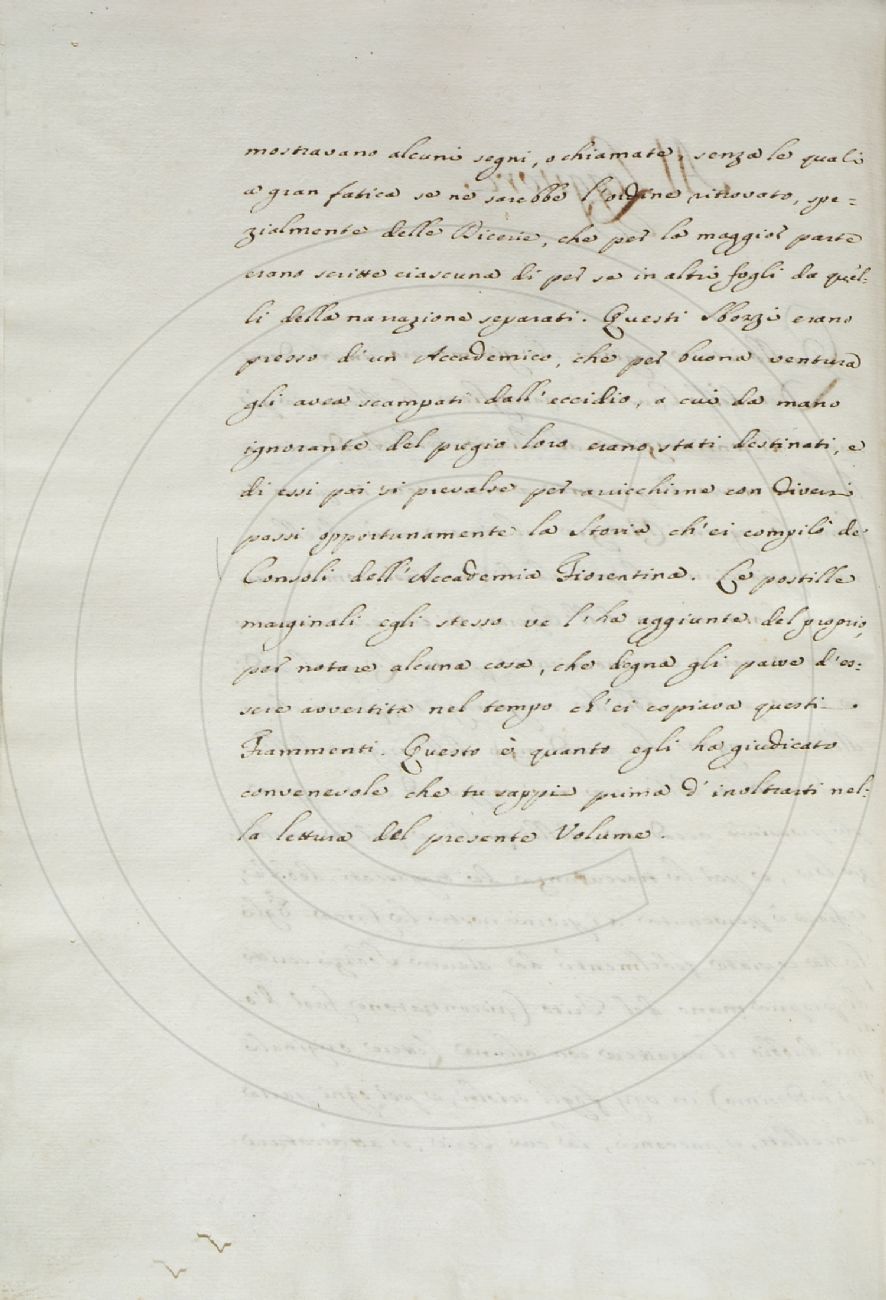 mostravano alcuni segni, o chiamate, senza le quali
a gran fatica se ne sarebbe l'ordine ritrovato, spe=
zialmente delle Dicerie, che per la maggior parte
erano scritte ciascuna di per se in altri fogli da quel=
li della narrazione separati. Questi Sbozzi erano
presso d'un Accademico, che per buona ventura
gli avea scampati dall'eccidio, a cui da mano
ignorante del pregio loro erano stati destinati, e
di essi poi si prevalse per arricchirne con diversi
passi opportunamente la Storia ch'ei compilò de
Consoli dell'Accademia Fiorentina. Le postille
marginali egli stesso ve l'ha aggiunte del proprio,
per notare alcuna cosa, che degna gli parve d'es=
sere avvertita nel tempo ch'ei copiava questi
Frammenti. Questo è quanto egli ha giudicato
convenevole che tu sappi prima d'inoltrarti nel=
la lettura del presente Volume.